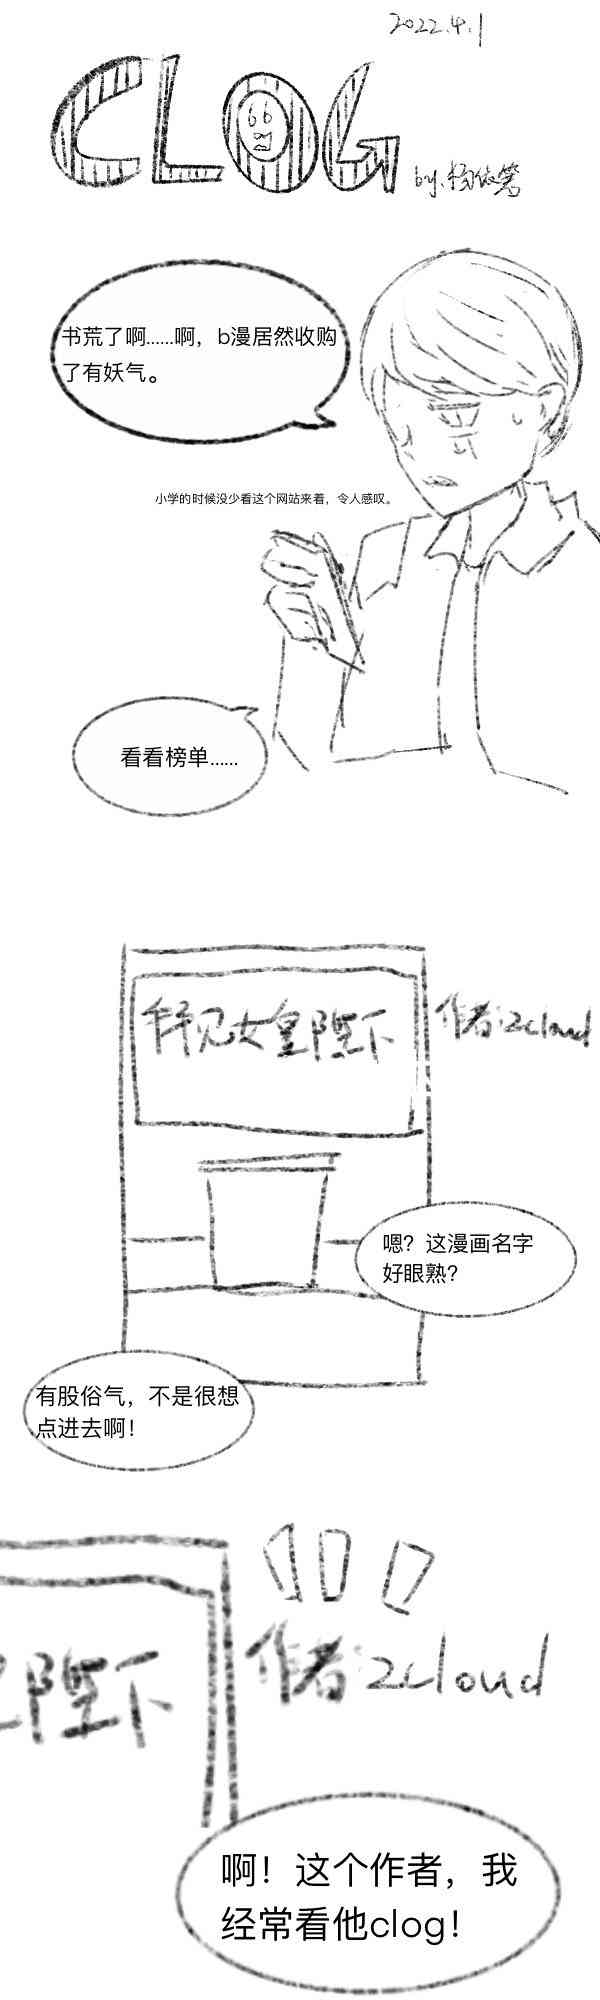 2022.4.1
CLOG
by.杨依笃
书荒了啊……啊，b漫居然收购
了有妖气。
小学的时候没少看这个网站来着，令人感叹。
看看榜单……
拜见女皇陛下
作者:2cloud
嗯？这漫画名字
好眼熟？
有股俗气，不是很想
点进去啊！
陛下
作者:2cloud
啊！这个作者，我
经常看他clog！